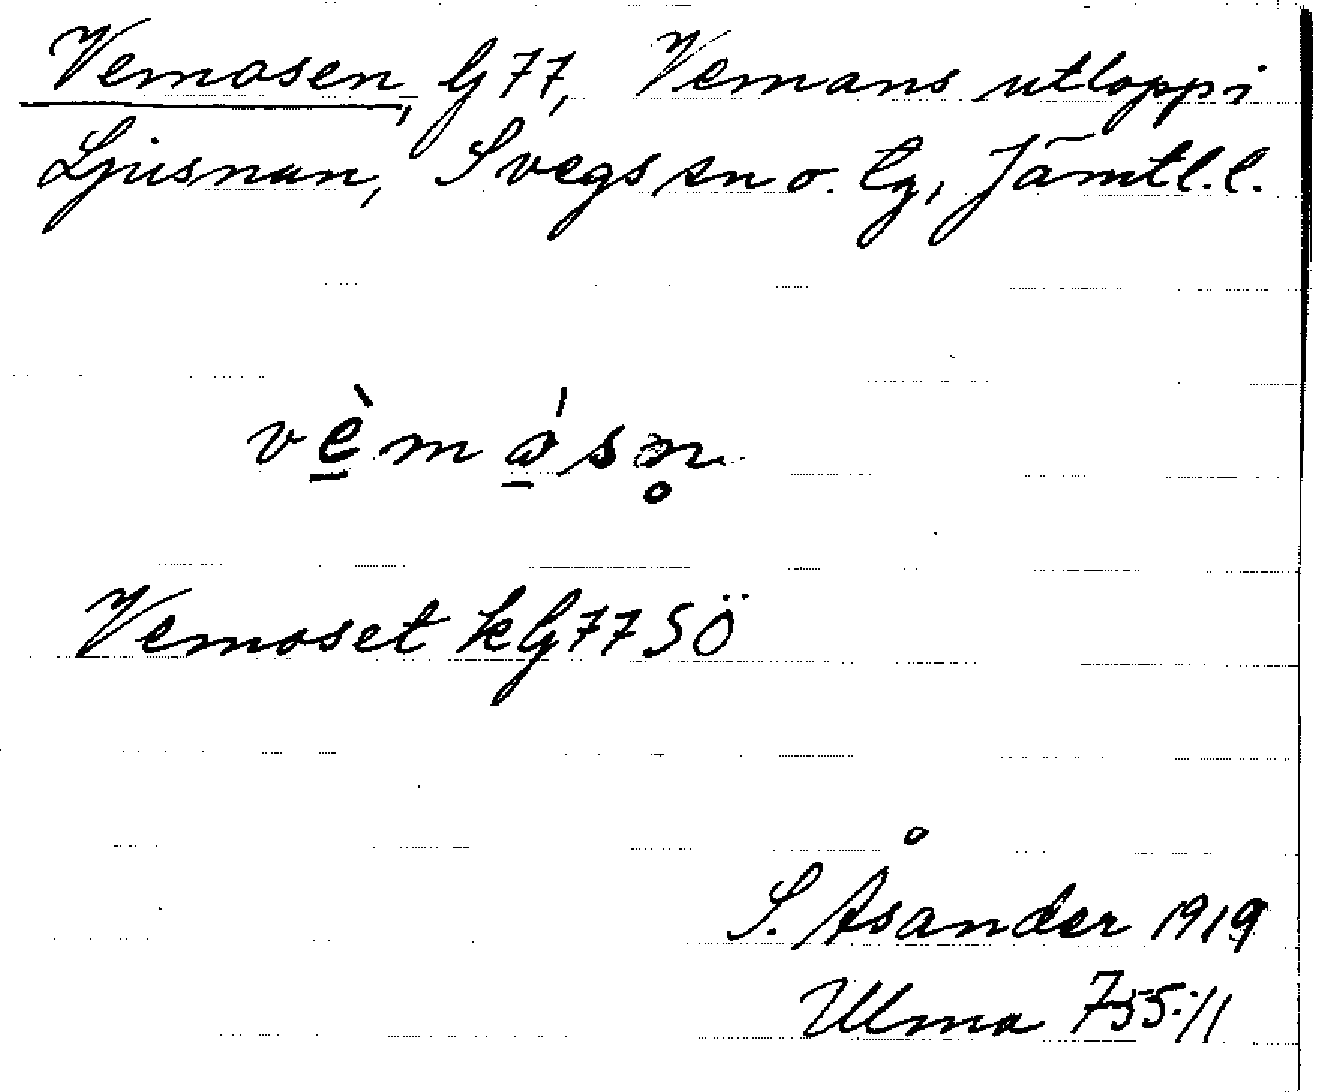 Vemosen, G 77, Vemans utlopp i
Ljusnan, Svegs sn o. tg, Jämtl. l.
Vemoset k G 77 SÖ
S. Åsander 1919
Ulma 755:11